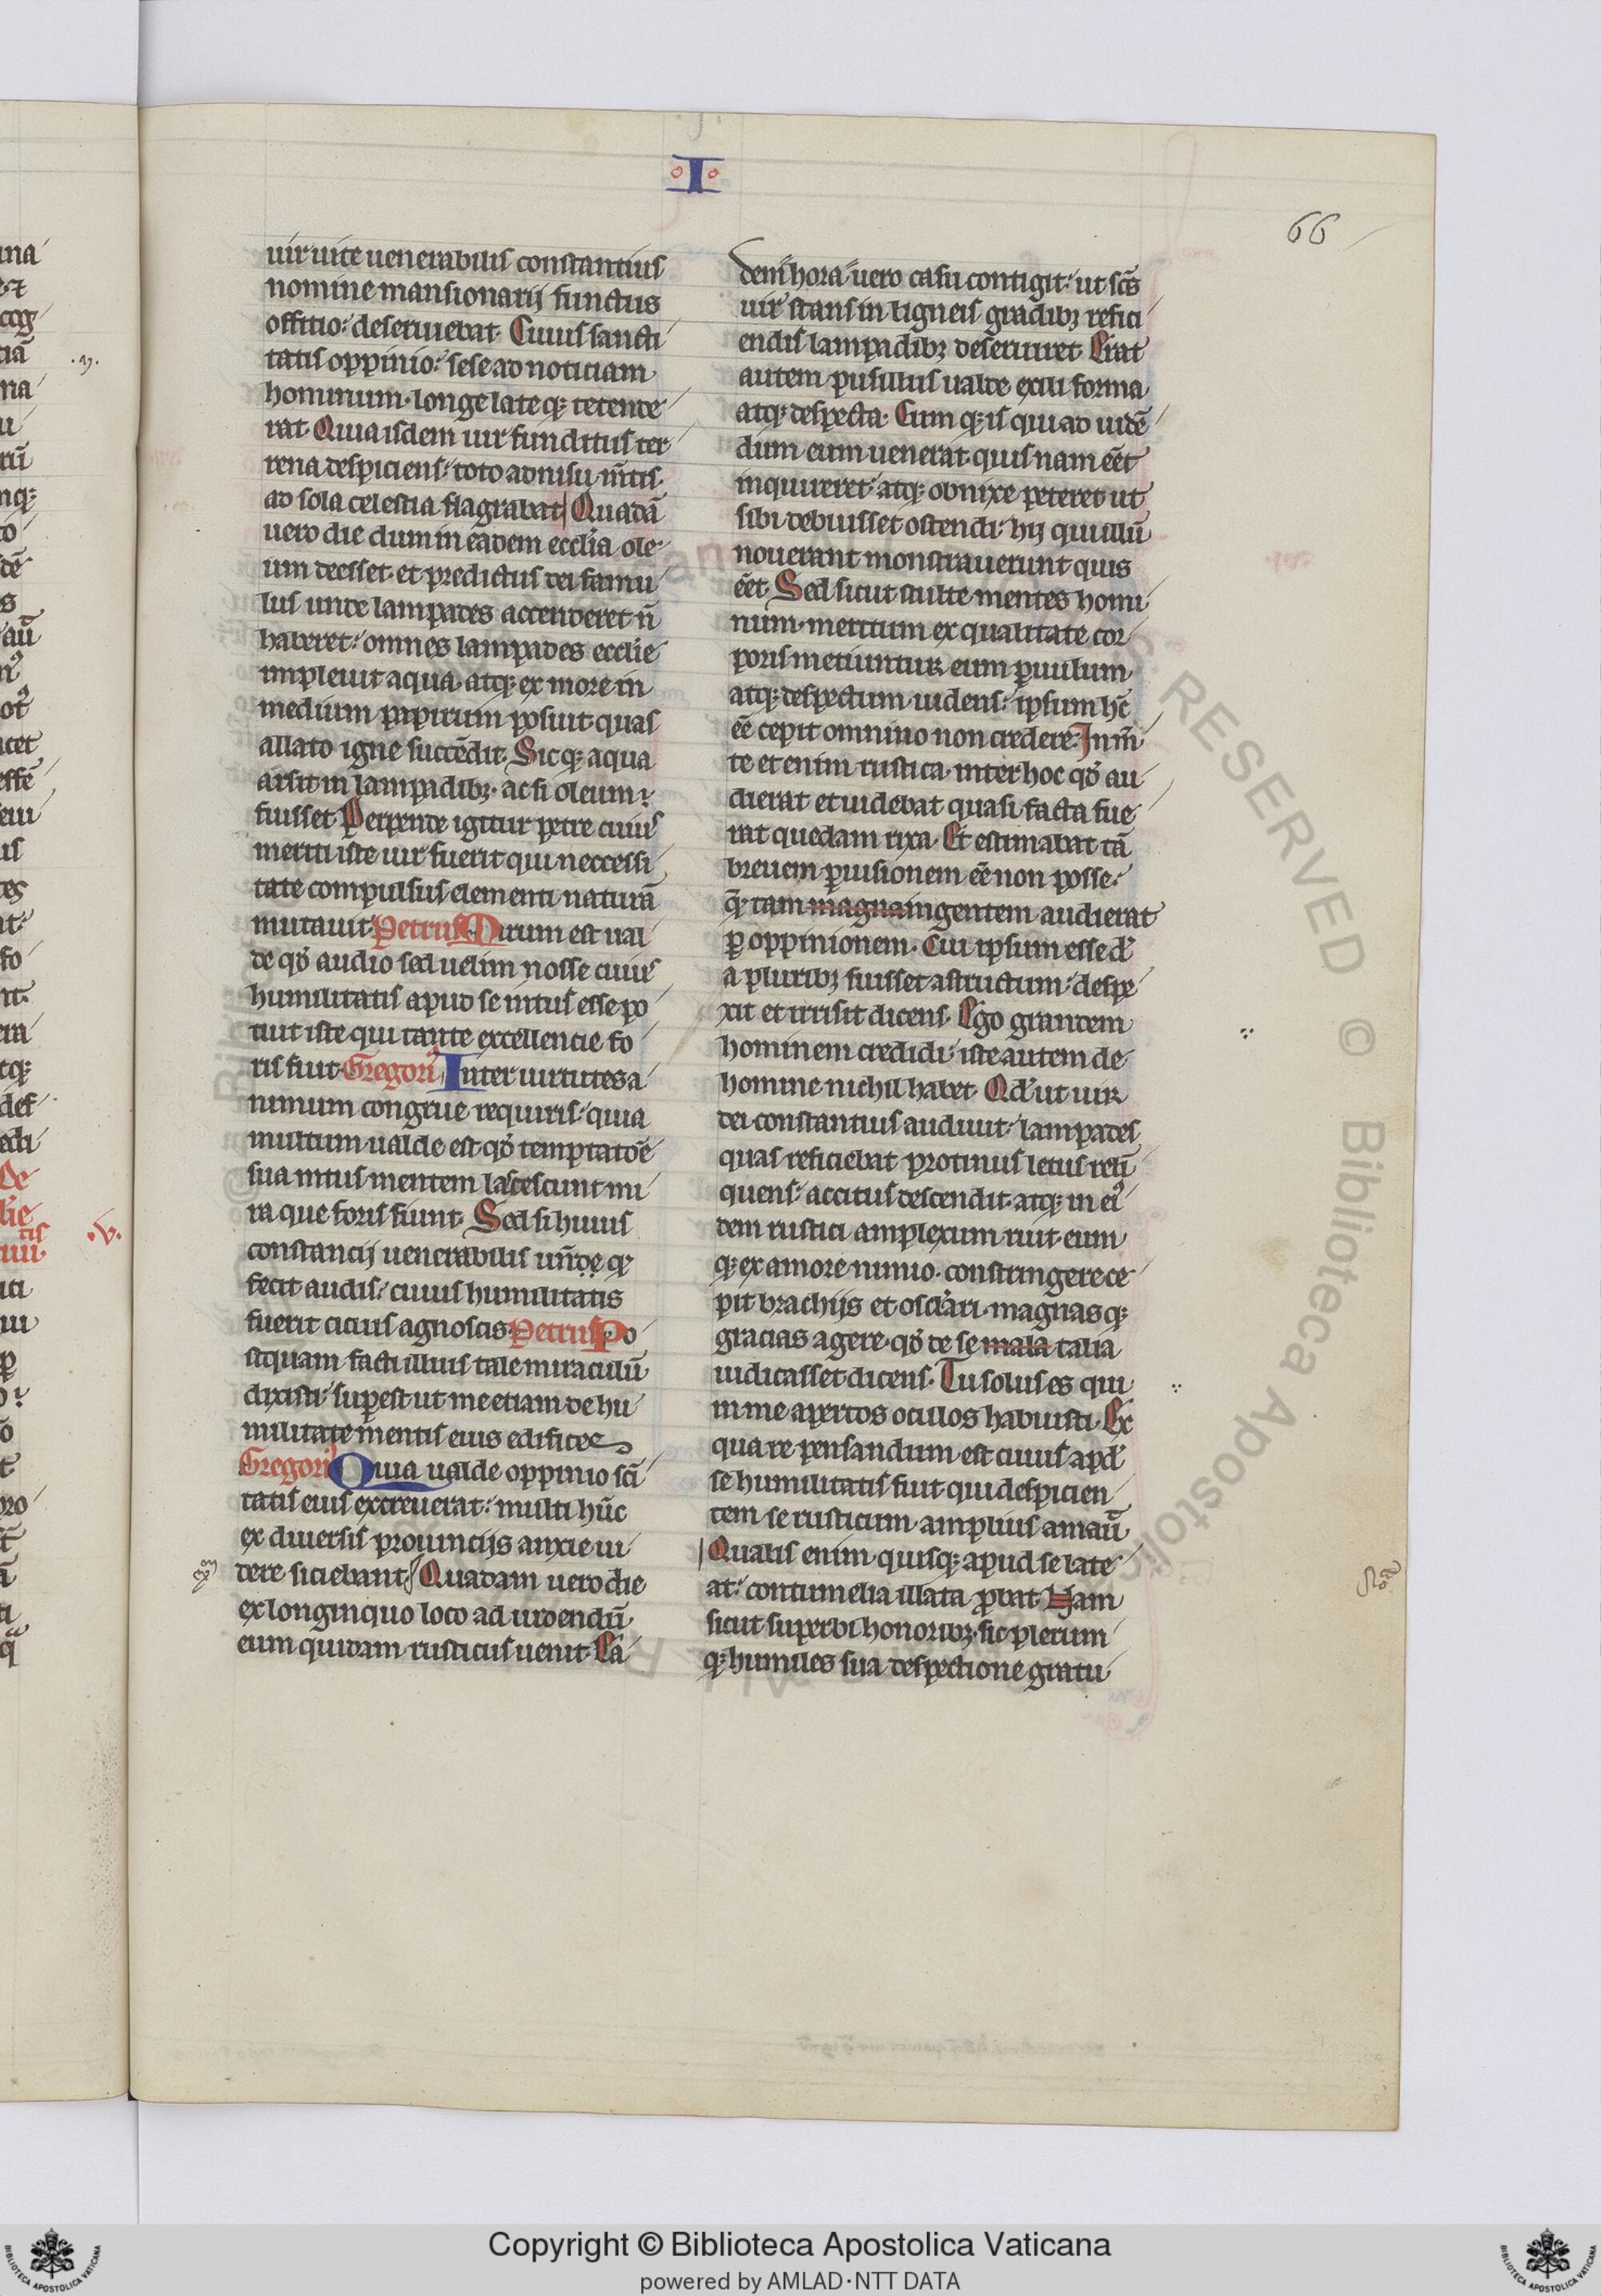 I
66
uir uite uenerabilis constantius
nomine mansionarij functus
offitio: deseruiebat. Cuius sancti
tatis oppinio: sese ad noticiam
hominum. longe lateqꝫ tetende
rat Quia isdem uir funditus ter
rena despiciens: toto adnisu m̄tis.
ad sola celestia flagrabat Quadā
uero die dum in eadem ecclīa ole
um deesset. et predictus dei famu
lus unde lampades accenderet n̄
haberet: omnes lampades ecclīe
impleuit aqua. atqꝫ ex more in
medium papirum posuit quas
allato igne succēdit. Sicqꝫ aqua
arsit in lampadibꝫ. ac si oleum
fuisset Perpende igitur petre cuius
meriti iste uir fuerit qui neccessi
tate compulsus elementi naturā
mutauit. Petrus Mirum est ual
de qđ audio sed uelim nosse cuius
humilitatis apud se intus esse po
tuit iste qui tante excellencie fo
ris fuit Gregori⁹ Inter uirtutes a
nimum congrue requiris. quia
multum ualde est qđ temptatōe
sua intus mentem lacescunt mi
ra que foris fiunt. Sed si huius
constancij uenerabilis un̄de qꝫ
fecit audis: cuius humilitatis
fuerit cicius agnoscis. Petrus Po
stquam facti illius tale miraculū
dixisti: suꝑest ut me etiam de hu
militate mentis eius edifices
Gregori⁹ Quia ualde oppinio sc̄i
tatis eius excreuerat: multi hūc
ex diuersis prouincijs anxie ui
dere siciebant Quadam uero die
ex longinquo loco ad uidendū
eum quidam rusticus uenit. Ea
dem hora uero casu contigit: ut sc̄s
uir stans in ligneis gradibꝫ refici
endis lampadibꝫ deseruiret. Erat
autem pusillus ualde exili forma
atqꝫ despecta. Cumqꝫ is qui ad uidē
dum eum uenerat quis nam eēt
inquireret: atqꝫ obnixe peteret ut
sibi debuisset ostendi: hij qui illū
nouerant monstrauerunt quis
eēt. Sed sicut stulte mentes homi
num. meritum ex qualitate cor
poris metiuntur. eum ꝑuulum
atqꝫ despectum uidens: ipsum hc̄
eē cepit omnino non credere. In m̄
te et enim rustica. inter hoc qđ au
dierat et uidebat quasi facta fue
rat quedam rixa. Et estimabat tā
breuem ꝑuisionem eē non posse.
q̄ tam magnam ingentem audierat
ꝑ oppinionem. Cui ipsum esse dˀ
a pluribꝫ fuisset astructum: despe
xit et irrisit dicens. Ego grandem
hominem credidi: iste autem de
homine nichil habet. Qđ ut uir
dei constantius audiuit: lampades
quas reficiebat protinus letus reli
quens: accitus descendit. atqꝫ in ei⁹
dem rustici amplexum ruit eum
qꝫ ex amore nimio. constringere ce
pit brachijs et osclari. magnasqꝫ
gracias agere. qđ de se mala talia
iudicasset dicens. Tu solus es qui
in me apertos oculos habuisti. Ex
qua re pensandum est cuius apđ
se humilitatis fuit qui despicien
tem se rusticum amplius amaū
Qualis enim quisqꝫ apud se late
at: contumelia illata ꝓbat Nam
sicut superbi honoribꝫ. sic plerum
qꝫ humiles sua despectione gratu
Copyright © Biblioteca Apostolica Vaticana
powered by AMLAD·NTT DATA